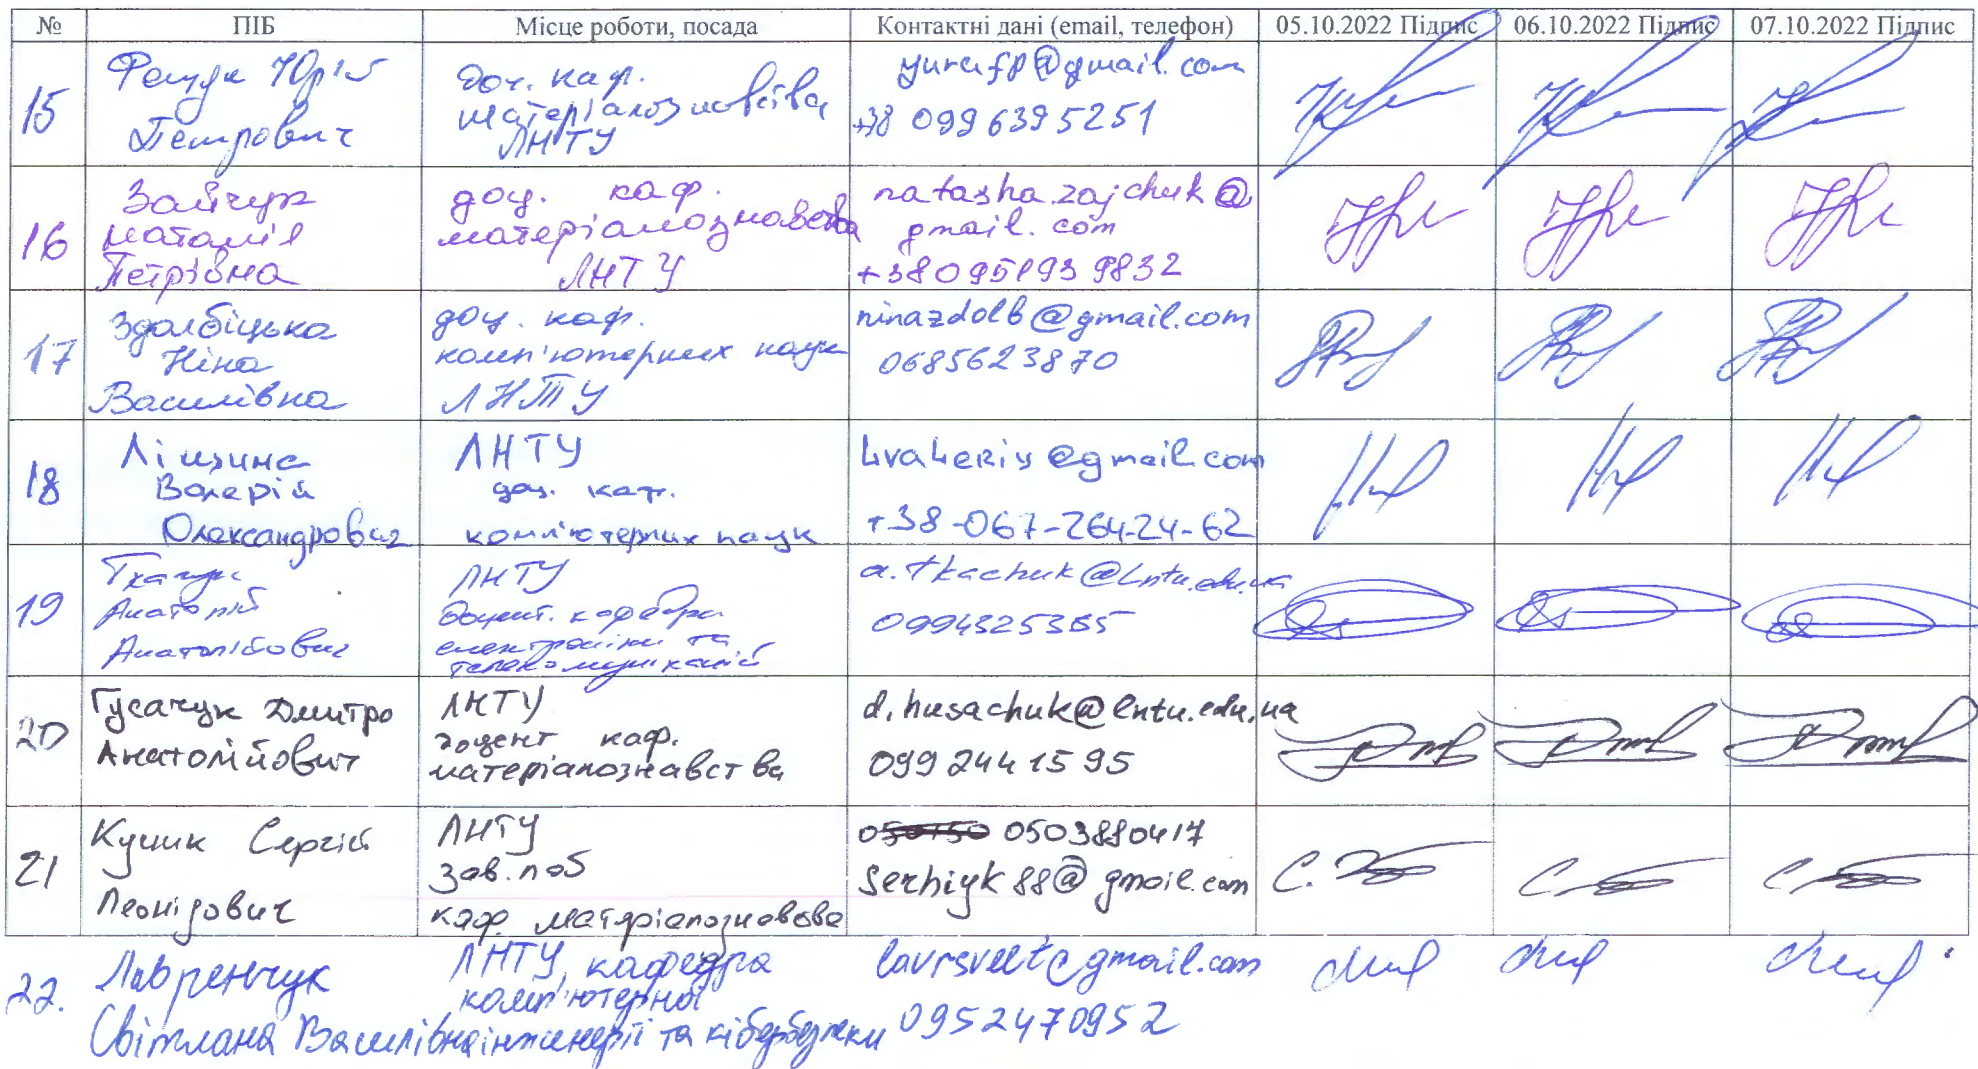 № ПІБ Місце роботи, посада Контактні дані (email, телефон) 05.10.2022 Підпис 06.10.2022 Підпис 07.10.2022 Підпис
15
Фещук Юрій
Петрович
доц. каф.
матеріалознавства
ЛНТУ
yurafp@gmail.com
+38 0996395251
16
Зайчук
Наталія
Петрівна
доц. каф.
матеріалознавства
ЛНТУ
natasha.zajchuk@
gmail.com
+380951939832
17
Здолбіцька
Ніна
Василівна
доц. каф.
комп'ютерних наук
ЛНТУ
ninazdolb@gmail.com
0685623870
18
Ліщина
Валерій
Олександрович
ЛНТУ
доц. каф.
комп'ютерних наук
lvaleriy@gmail.com
+38-067-264-24-62
19
Ткачук
Анатолій
Анатолійович
ЛНТУ
доцент. кафедри
електроніки та
телекомунікацій
a.tkachuk@lntu.edu.ua
0994325365
20
Гусачук Дмитро
Анатолійович
ЛНТУ
доцент каф.
матеріалознавства
d.husachuk@lntu.edu.ua
099 244 15 95
21
Куник Сергій
Леонідович
ЛНТУ
зав. лаб
каф матеріалознавсва
0503880417
serhiyk88@gmail.com
22.
Лавренчук
Світлана Василівна
ЛНТУ, кафедра
комп'ютерної
інженерії та кібербезпеки
lavrsvet@gmail.com
0952470952